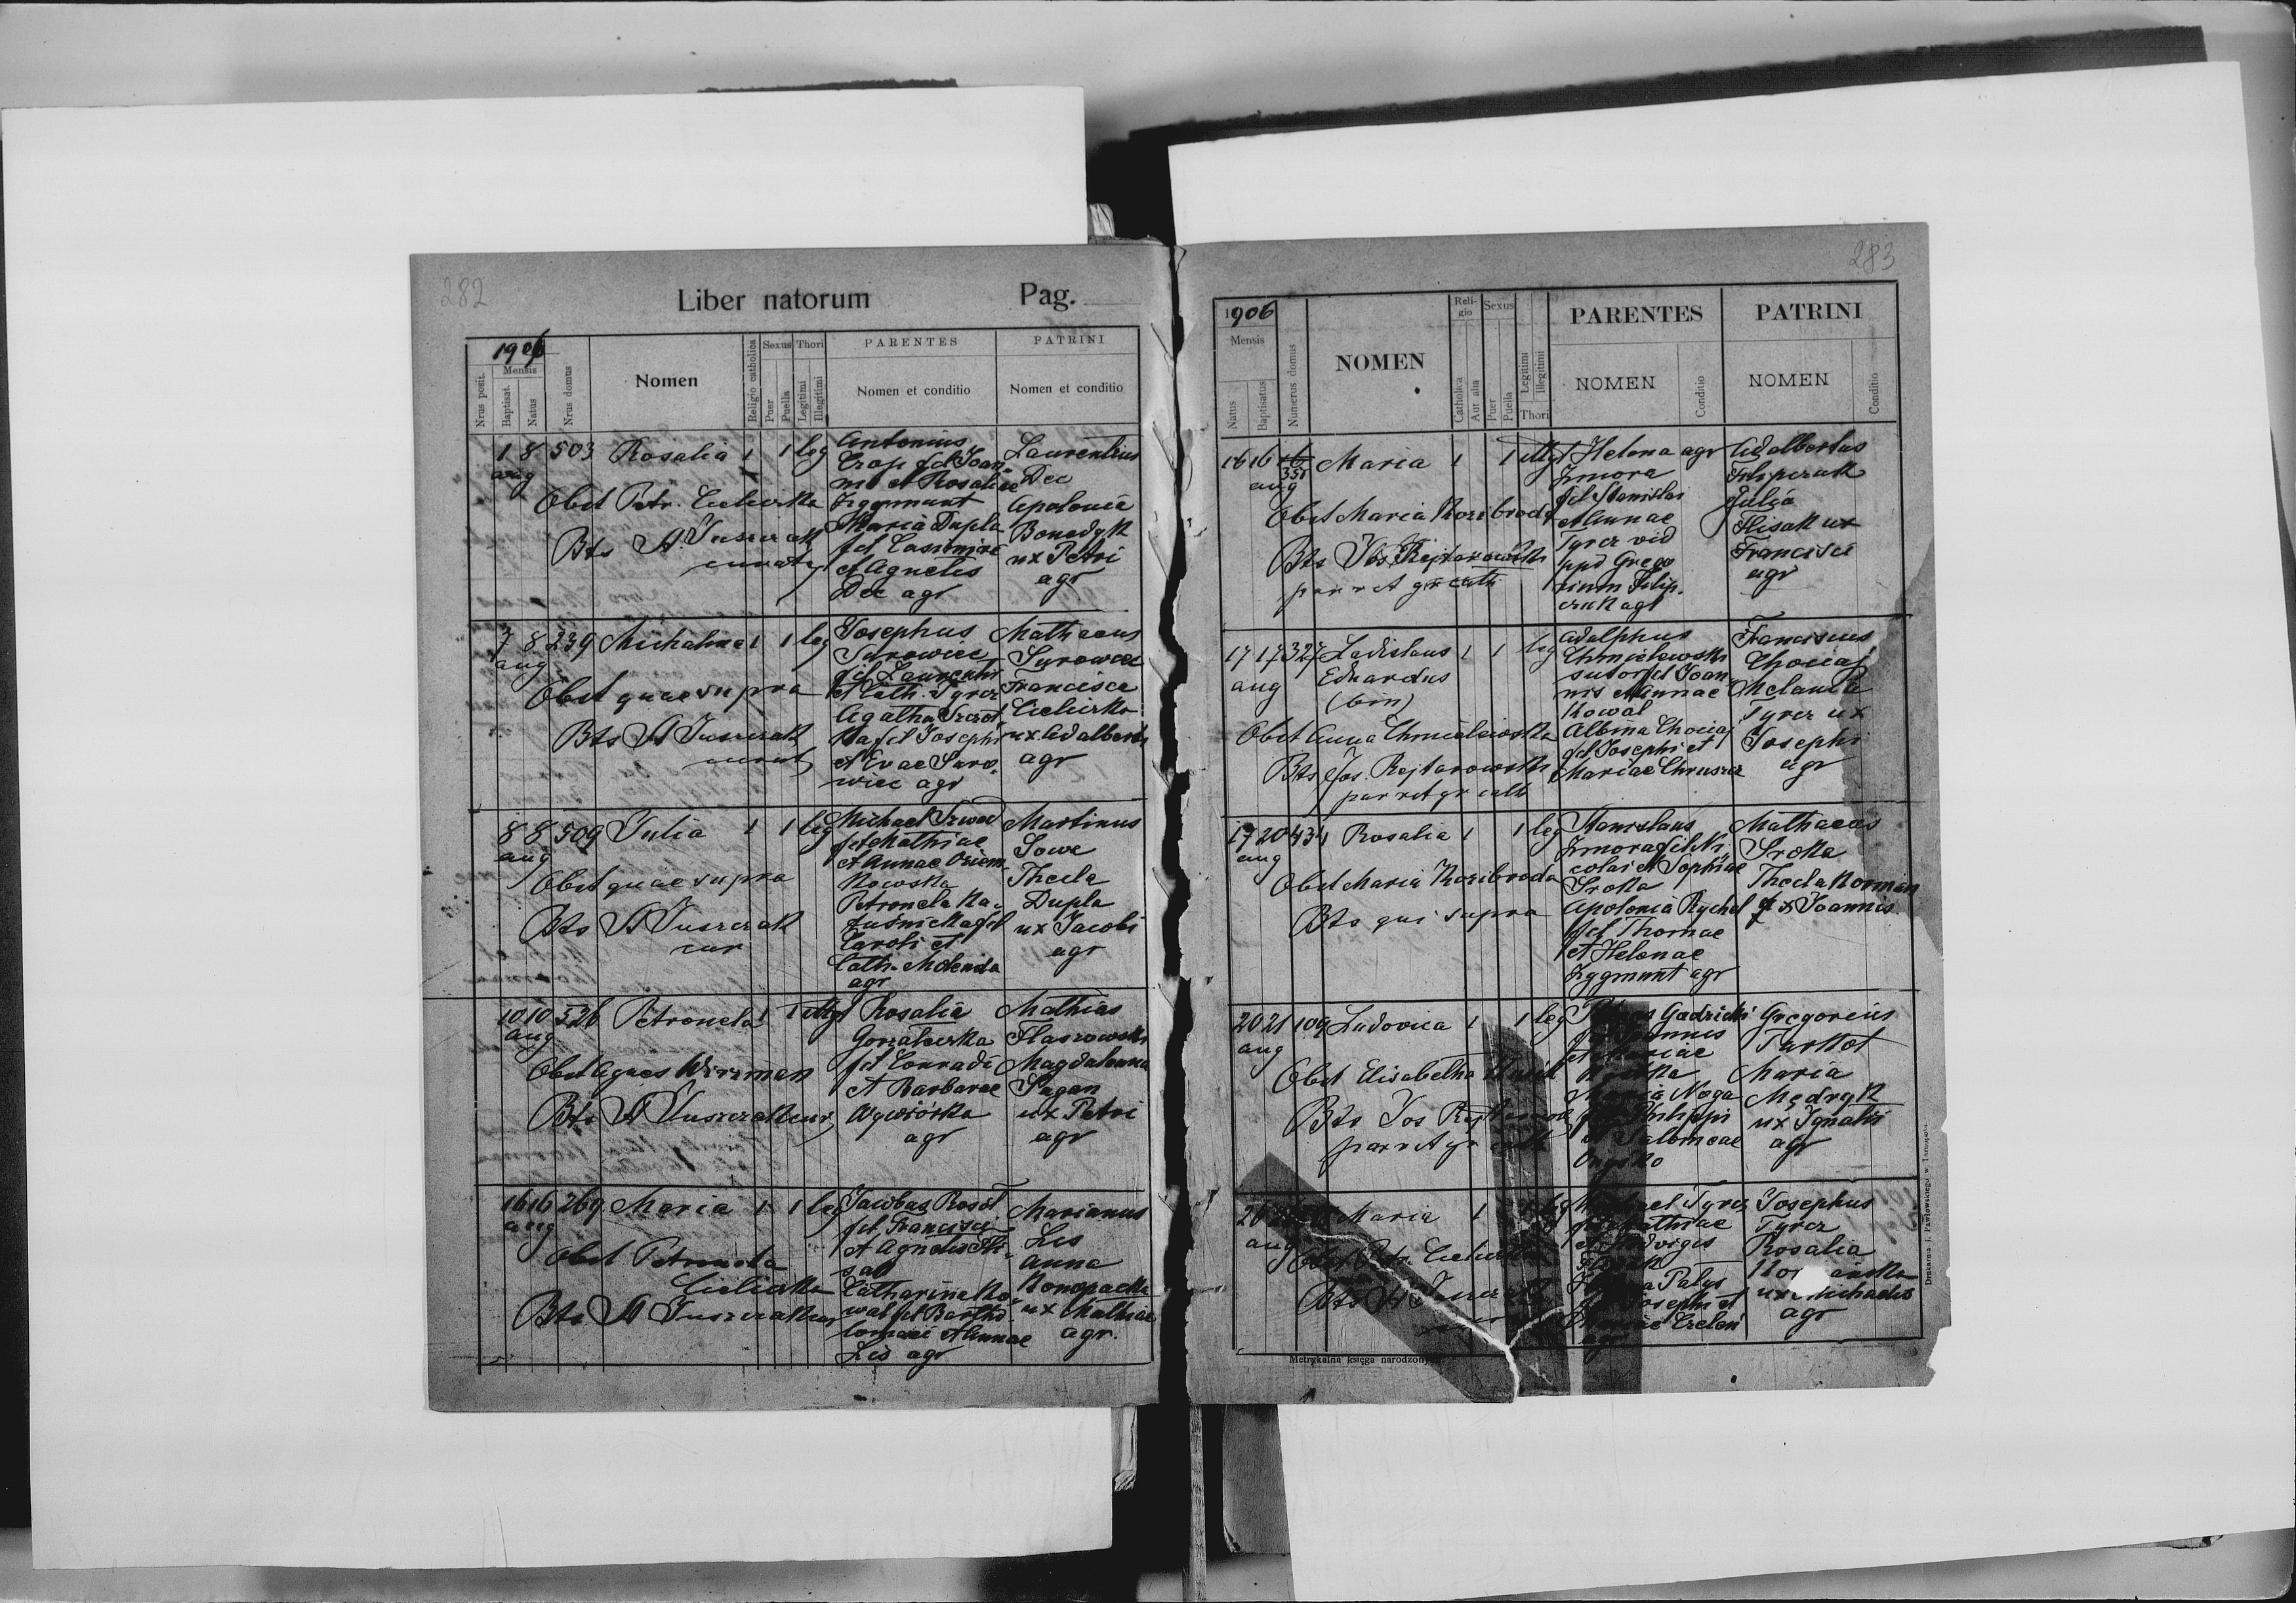 282
Liber natorum Pag.
1906
Mensis
Nrus posit.
Baptisat.
Natus
Nrus domus
Nomen
Religio catholica
Sexus
Puer
Puella
Thori
Legitimi
Illegitimi
PARENTES
Nomen et conditio
PATRINI
Nomen et conditio
1 8 503 Rosalia 1 1 leg
aug
Obst Petr. Cielicka
Bts A Juszczak
Antonius
fil Joan-
nis et Rosaliae
Zygmunt
Maria Dupla
fil Casimiri
et Agnetis
Dec agr
Laurentius
Dec
Apolonia
Benedyk
ux Petri
agr
7 8 239 Michalina 1 1 leg
aug
Obst quae supra
Bts A Juszczak
Josephus
Surowiec
fil Laurentii
et Cath. Tyrcz
Agatha
fil Josephi
et Evae Suro-
wiec agr
Mathaeus
Surowiec
Francisca
ux Adalberti
agr
8 8 509 Julia 1 1 leg
aug
Obst quae supra
Bts A Juszczak
cur
Michael Szwed
fil Mathiae
et Annae
Petronela Ka-
fil
Caroli et
Cath. Molenda
agr
Martinus
Sowa
Thecla
Dupla
ux Jacobi
agr
10 10 526 Petronela 1 1 illegt
aug
Obst Agnes Wirzman
Bts A Juszczak cur
Rosalia
fil Conradi
et Barbarae
Wywiórka
agr
Mathias
Magdalena
Pagan
ux Petri
agr
16 16 269 Maria 1 1 leg
aug
Obst Petronela
Bts A Juszczak cur
Jacobus Rosół
fil Francisci
et Agnetis Fli-
sak
Catharina Ko-
wal fil Bartho-
lomaei et Annae
Lis agr
Marianus
Lis
Anna
Konopacka
ux Mathiae
agr.
283
1906
Mensis
Natus
Baptisatus
Numerus domus
NOMEN
Reli-
gio
Catholica
Aut alia
Sexus
Puer
Puella
Legitimi
Illegitimi
Thori
PARENTES
NOMEN
Conditio
PATRINI
NOMEN
Conditio
16 16 351 Maria 1 1 illegt
aug
Obst Maria Kozibroda
Bts Jos Rejtarowski
par rit gr cath
Helena agr
Zmora
fil Stanislai
et Annae
Tyrcz vid
ppd Grego
rium Filip-
czuk agr
Adalbertus
Filipczuk
Julia
Flisak ux
Francisci
agr
17 17 327 Ladislaus 1 1 leg
aug Eduardus
(bin)
Obst Anna Chmielewska
Bts Jos. Rejtarowski
par rit gr cath
Adolphus
Chmielewski
sutor fil Joan
nis et Annae
Kowal
Albina Chociaj
fil Josephi et
Mariae Chruszcz
Franciscus
Chociaj
Melania
Tyrcz ux
Josephi
agr
17 20 434 Rosalia 1 1 leg
aug
Obst Maria Kozibroda
Bts qui supra
Stanislaus
Zmora fil Ni-
colai et Sophiae
Sroka
Apolonia Rychel
fil Thomae
et Helenae
Zygmunt agr
Mathaeus
Sroka
Thecla Korman
ux Joannis
20 21 109 Ludovica 1 1 leg
aug
Obst Elisabetha
Bts Jos
par rit gr cath
Maria Noga
fil Philippi
et Salomeae
Onyśko
Gregorius
Turkot
Maria
Mędryk
ux Ignatii
agr
Maria 1
aug
Obst Petr.
Bts A
Michael Tyrcz
fil Mathiae
et Hedvigis
Palys
fil Josephi et
Czeleń
agr
Josephus
Tyrcz
Rosalia
ux Michaelis
agr
Metrykalna księga narodzony
Drukarnia J. Pawłowskiego w Tarnopolu.